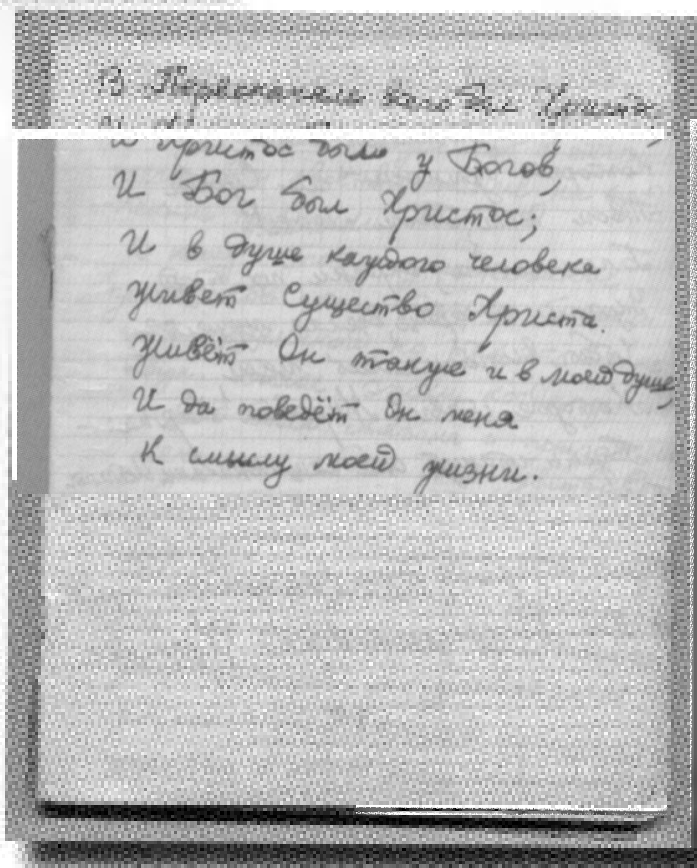 В Первоначале был Христос
И Христос был у Богов,
И Бог был Христос;
И в душе каждого человека
живёт Существо Христа.
живёт Он также и в моей душе,
И да поведёт Он меня
К смыслу моей жизни.